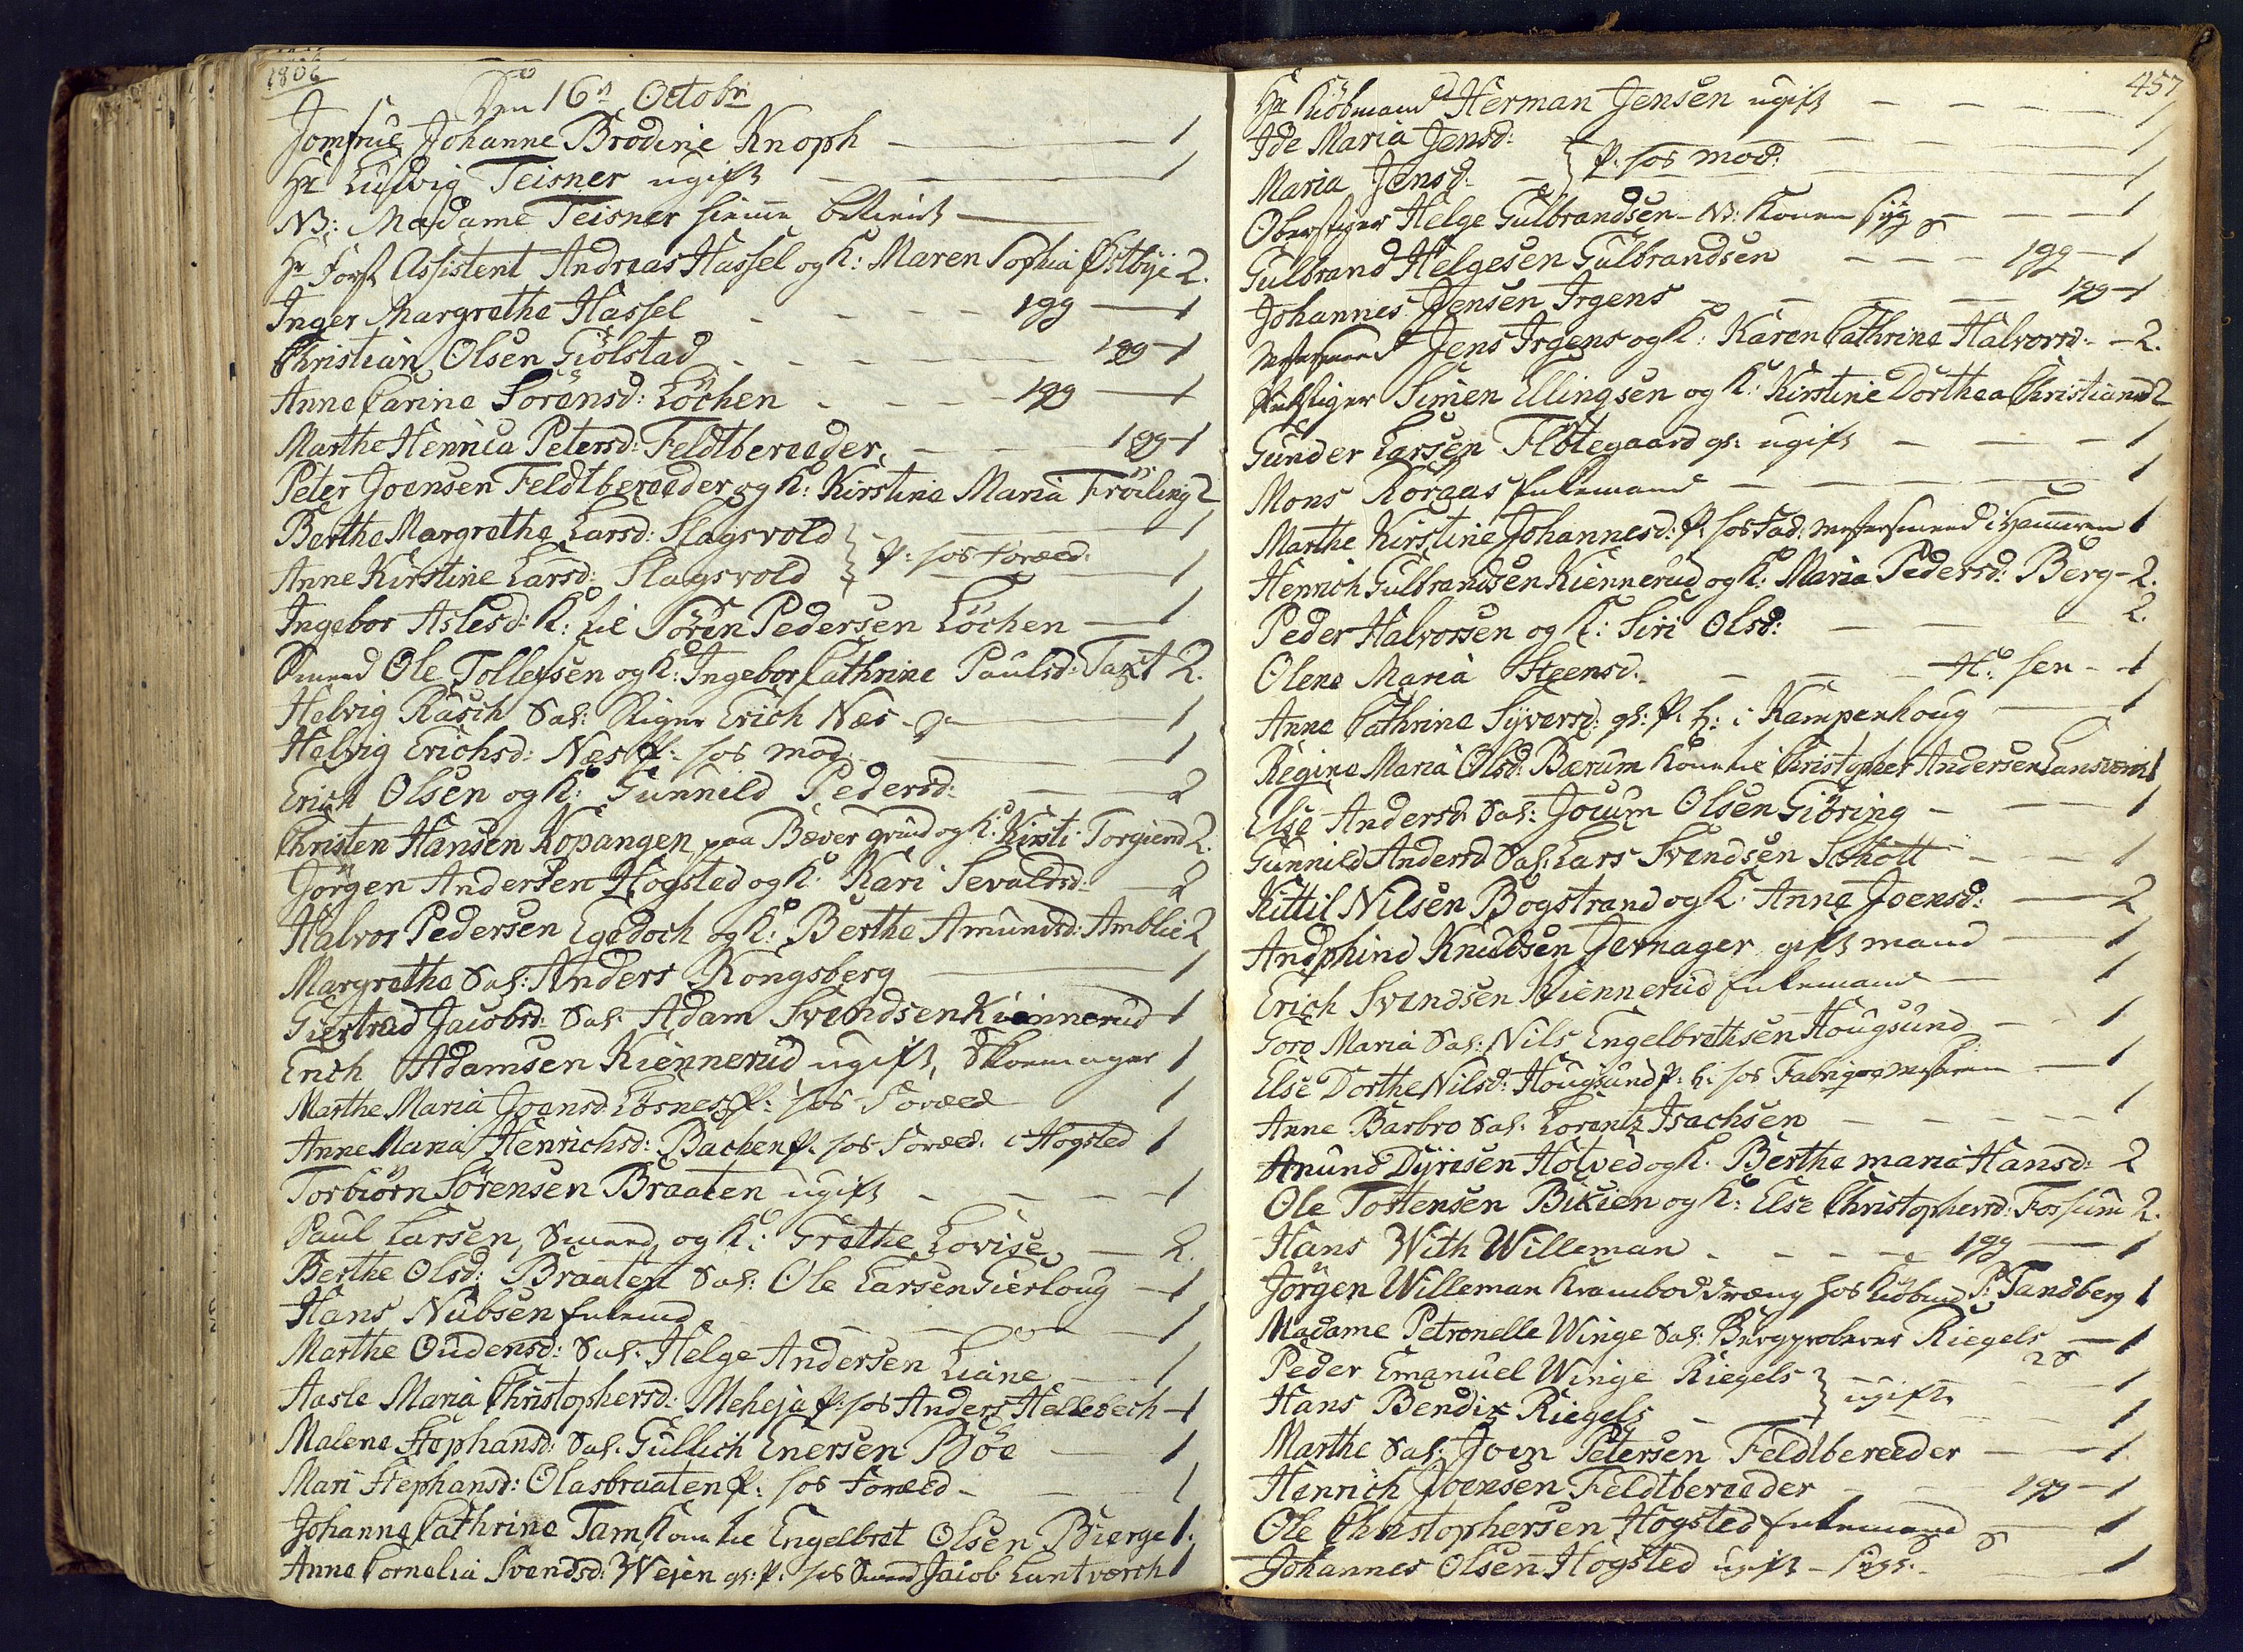 1806
Den 16n Octobr
Jomfrue Johanne Brodine Knoph — 1
Hr Ludvig Teisner ugift — 1
NB: Madame Teisner hieme betient —
Hr Forst Assistent Andreas Hassel og K: Maren Sophia Østbye 2.
Inger Margrethe Hassel — 1gg — 1
Christian Olsen Giölstad — 1gg — 1
Anne Carine Sörensd: Löchen — 1gg — 1
Marthe Henrica Petersd: Feldtbereeder — 1gg — 1
Peter Joensen Feldtbereeder og K: Kirstine Maria Fröiling 2
Berthe Margrethe Larsd: Slagsvold — 1
Anne Kirstine Larsd: Slagsvold } P: hos Foræld: — 1
Ingebor Aslesd: K: til Sören Pedersen Löchen — 1
Smed Ole Tollefsen og K: Ingebor Cathrine Paulsd: Taxt 2.
Helvig Rasch Sal: Stiger Erich Næs — 1
Helvig Erichsd: Næs P: hos mod — 1
Erich Olsen og K: Gunnild Pedersd: — 2
Christen Hansen Kopangen paa Bæver grund og K: Kirsti Torgiersd 2.
Jörgen Andersen Hogsted og K: Kari Sevaldsd: — 2
Halvor Pedersen Egedoch og K: Berthe Amundsd: Amblie 2
Margrethe Sal: Anders Kongsberg — 1
Giertrud Jacobsd: Sal: Adam Svendsen Kiennerud — 1
Erich Adamsen Kiennerud ugift, Skomager 1
Marthe Maria Joensd: Losnes P: hos Foræld 1
Anne Maria Henrichsd: Bachen P: hos Foræld: i Hogsted 1
Torbiörn Sörensen Braaten ugift — 1
Paul Larsen, Smed, og K: Grethe Lovise — 2.
Berthe Olsd: Braaten Sal: Ole Larsen Gierloug — 1
Hans Nubsen Enkemd — 1
Marthe Oudensd: Sal: Helge Andersen Liane — 1
Aasle Maria Christophersd: Meheja P: hos Anders Hellebech — 1
Malene Stephansd: Sal: Gullich Enersen Böe — 1
Mari Stephansd: Olasbraaten P: hos Foræld — 1
Johanne Cathrine Tam Kone til Engelbret Olsen Bierge 1.
Anne Cornelia Svendsd: Wejen gl: P: hos Smed Jacob Luntværch 1
457
Hr Kiöbmand Herman Jensen ugift — 1
Ide Maria Jensd: — 1
Maria Jensd: — } P: hos mod: — 1
Oberstiger Helge Gulbrandsen — NB: Konen syg — 1
Gulbrand Helgesen Gulbrandsen — 1gg — 1
Johannes Jensen Irgens — 1gg — 1
Jens Irgens og K: Karen Cathrine Halvorsd: — 2.
Simen Ellingsen og K: Kirstine Dorthea Christiansd 2
Gunder Larsen Flötegaard gl: ugift — 1
Mons Roraas Enkemand — 1
Marthe Kirstine Johannesd: P: hos Fad: Mestersmed i Hameren 1
Henrich Gulbrandsen Kiennerud og K: Maria Pedersd: Berg — 2.
Peder Halvorsen og K: Siri Olsd: — 2.
Olene Maria Steensd: — 1
Anne Cathrine Syversd: gl: P: h: i Kampenhoug — 1
Regine Maria Olsd: Bærum Kone til Christopher Andersen 1
Else Andersd: Sal: Jocum Olsen Giöring — 1
Gunnild Andersd Sal: Lars Svendsen Schött — 1
Kittil Nilsen Bogstrand og K: Anne Joensd: — 2
Andphind Knudsen Jernager gift mand — 1
Erich Svendsen Kiennerud Enkemand — 1
Goro Maria Sal: Nils Engelbrethsen Hougsund — 1
Else Dorthe Nilsd: Hougsund P: h: hos — 1
Anne Barbro Sal: Lorentz Isachsen — 1
Anund Dyresen Holved og K: Berthe maria Hansd: 2
Ole Tostensen Bikien og K: Else Christophersd: Fossum 2.
Hans With Willeman — 1gg — 1
Jörgen Willeman Krambod dræng hos Kiöbmd P: Tandberg 1
Madame Petronelle Winge Sal: Bergproberer Riegels — 1
Peder Emanuel Winge Riegels — 1
Hans Bendix Riegels — } ugifte — 1
Marthe Sal: Joen Petersen Feldbereeder — 1
Henrich Joensen Feldtbereeder — 1gg — 1
Ole Christophersen Hogsted Enkemand — 1
Johannes Olsen Hogsted ugift — syg: — 1